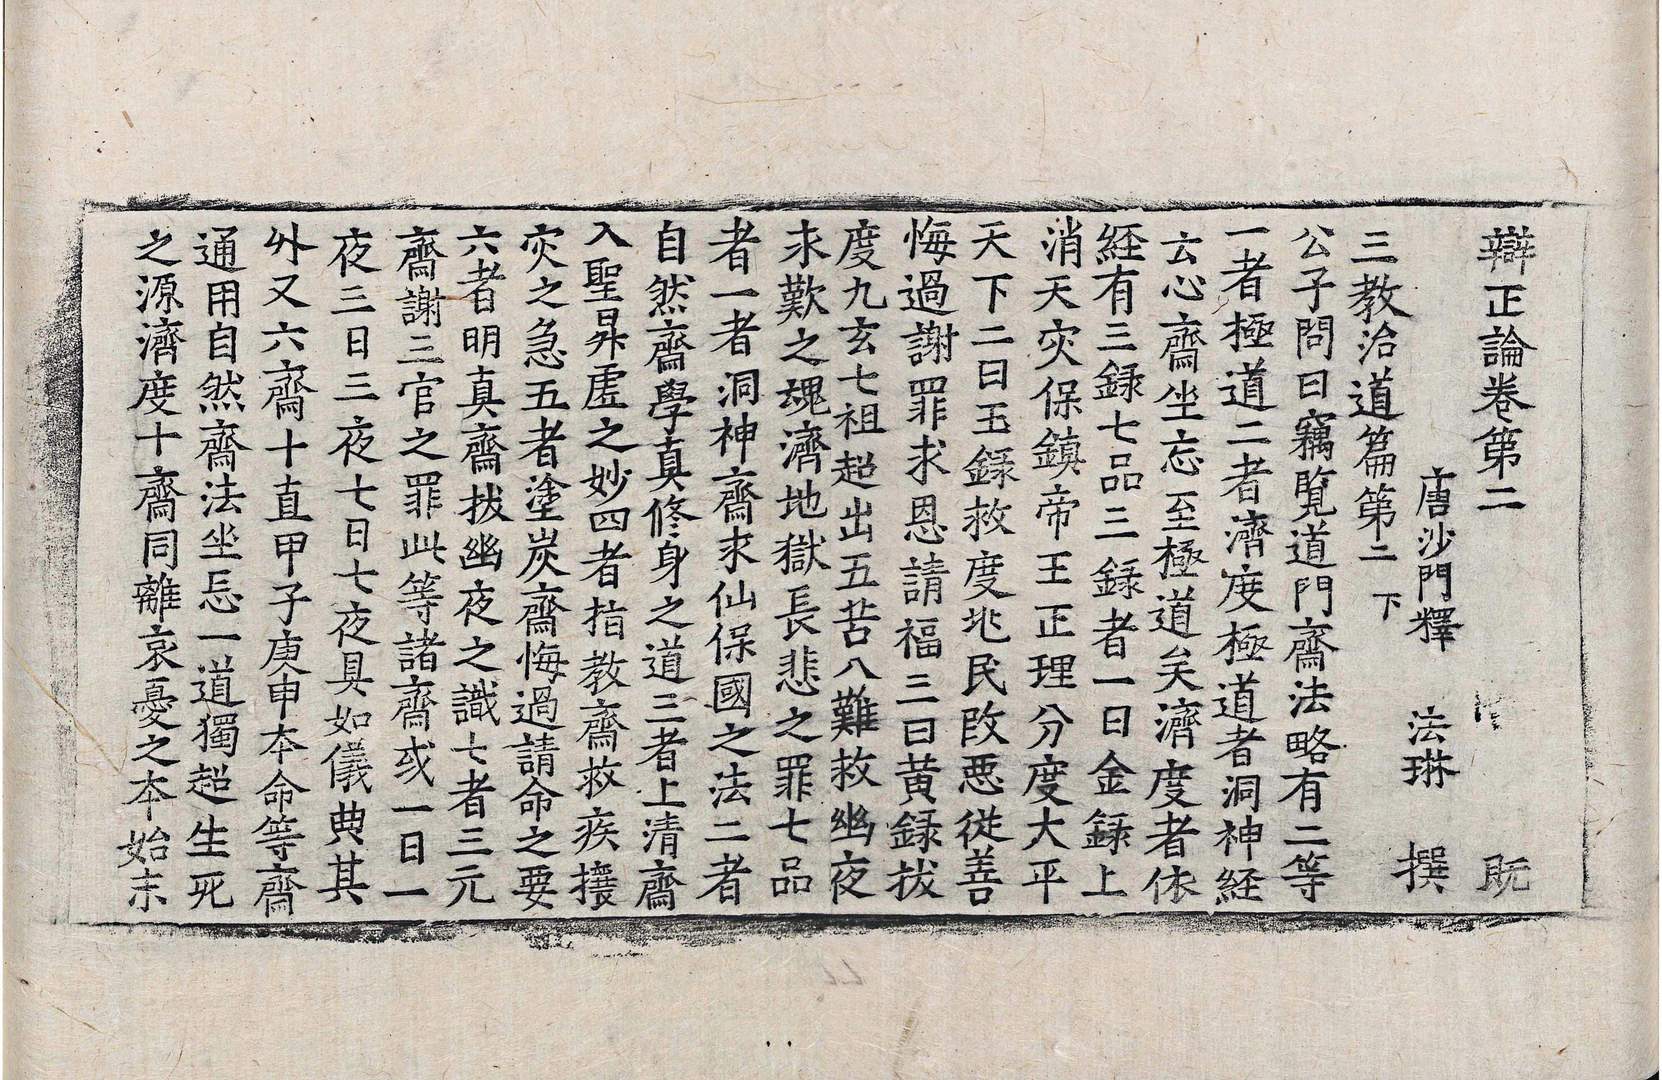 辯正論卷第二 既
唐沙門釋 法琳 撰
三教治道篇第二 下
公子問曰竊覽道門齋法略有二等
一者極道二者濟度極道者洞神經
云心齋坐忘至極道矣濟度者依
経有三録七品三録者一曰金録上
消天灾保鎮帝王正理分度大平
天下二曰玉録救度兆民改悪從善
悔過謝罪求恩請福三曰黄録拔
度九玄七祖超出五苦八難救幽夜
求歎之魂濟地獄長悲之罪七品
者一者洞神齋求仙保國之法二者
自然齋學真修身之道三者上清齋
入聖昇虚之妙四者指教齋救疾攘
灾之急五者塗炭齋悔過請命之要
六者明真齋拔幽夜之識七者三元
齋謝三官之罪此等諸齋或一日一
夜三日三夜七日七夜具如儀典其
外又六齋十直甲子庚申本命等齋
通用自然齋法坐忘一道獨超生死
之源濟度十齋同離哀憂之本始末